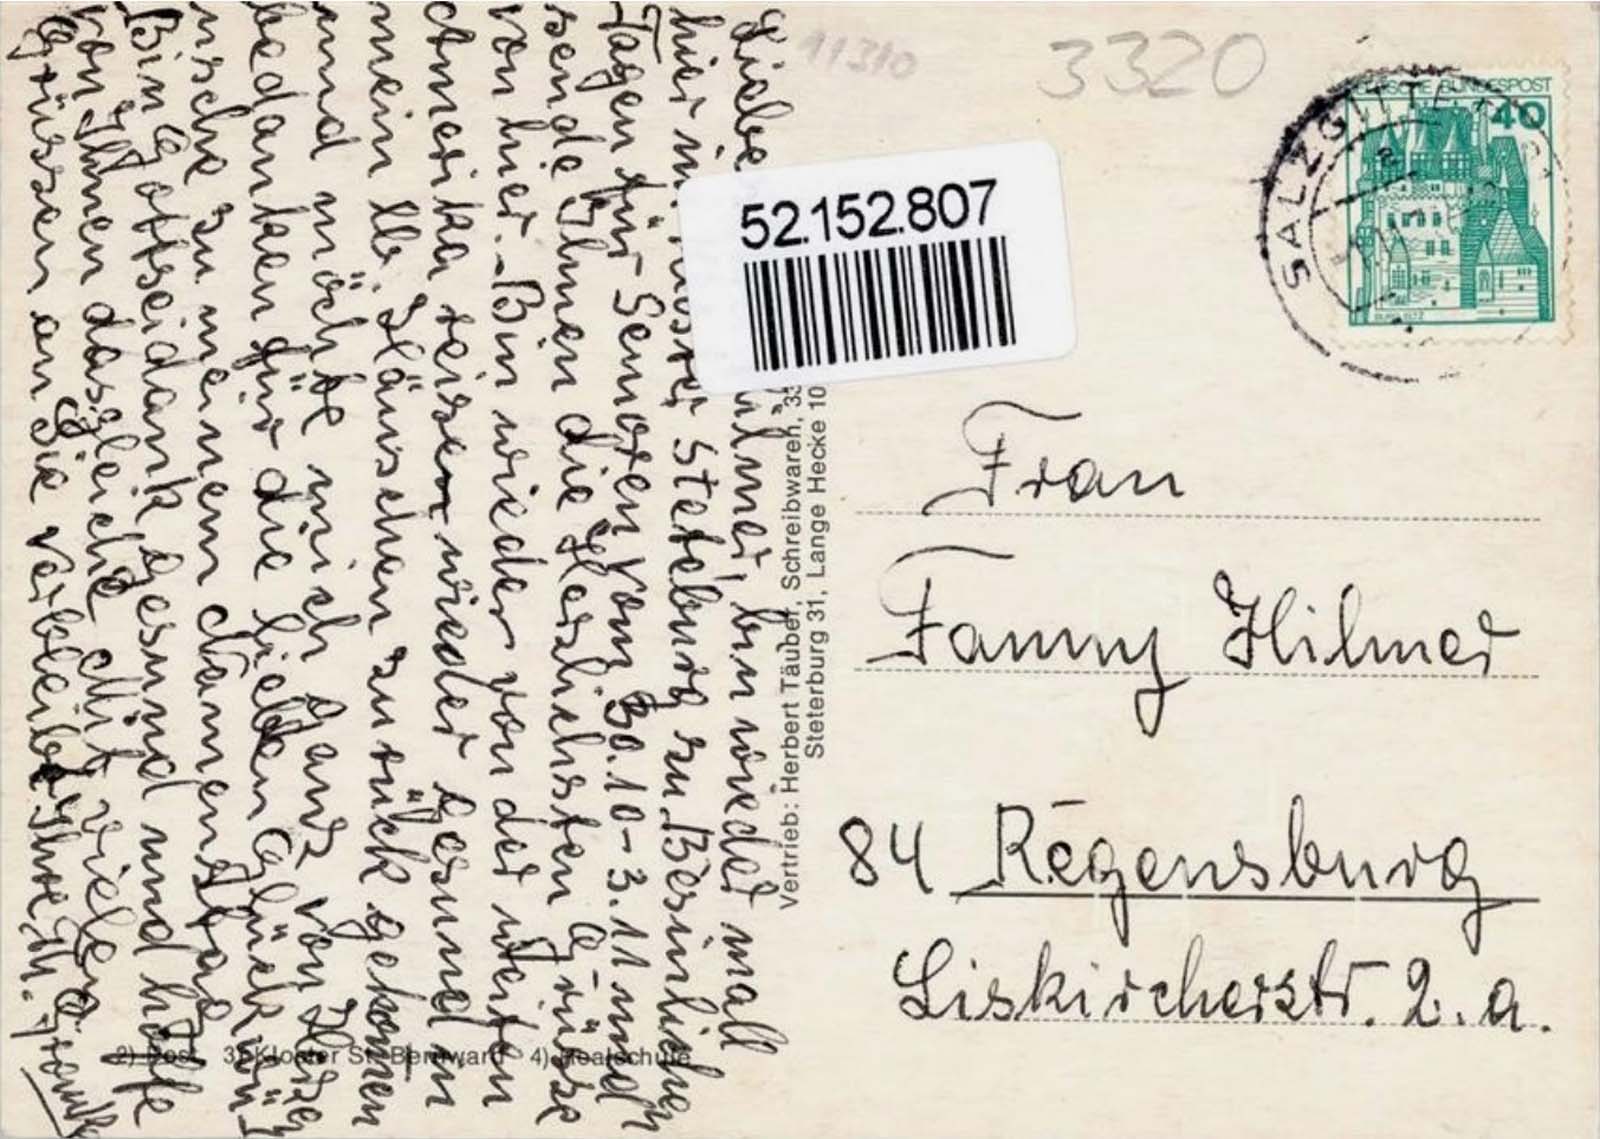 Liebe Hilmer, bin wieder mall
hier in Kloster Steteburg zu Besinlichen
Tagen für Senioren vom 30.10-3.11 und
sende Ihnen die Herzlichsten Grüsse
von hier. Bin wieder von der weiten
Amerika reisen wieder gesund in
mein lb. Häuschen zurück gekomen
und möchte mich ganz von Herzen
bedanken für die lieben Glückwün-
nsche zu meinem Namenstag
Bin Gottseidank gesund und hoffe
von Ihnen dasgleiche Mit vielen
Grüssen an Sie verbleibe Ihre
11310
3320
52.152.807
Vertrieb: Herbert Täuber, Schreibwaren, 33
Steterburg 31, Lange Hecke 10
2) Post 3) Kloster St. Bernward 4) Realschule
DEUTSCHE BUNDESPOST
40
BURG ELTZ
SALZGITTER
a
Frau
Fanny Hilmer
84 Regensburg
Liskircherstr. 2. a.